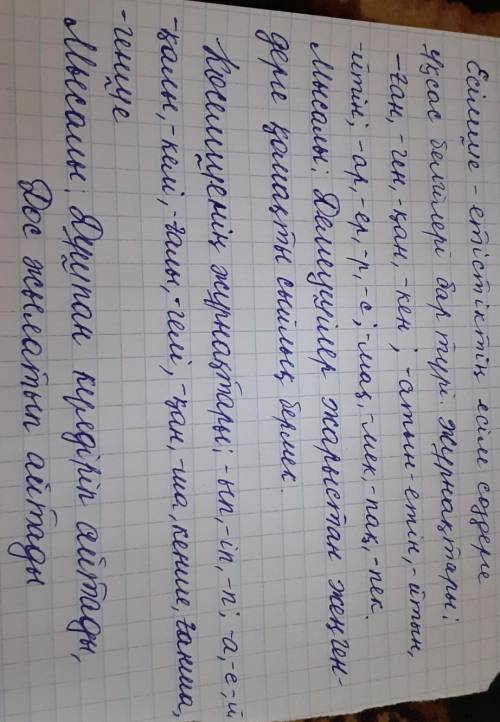 Есімше - етістіктің есім сөздерге
ұқсас белгілері бар түрі. Жұрнақтары:
-ған, -ген, -қан, -кен; -атын -етін, -йтын,
-йтін; -ар, -ер, -р, -с; -мақ, -мек, -пақ, -пек.
Мысалы: Демеушілер жарыстан жеңген-
дерге қомақты сыйлық бермек.
Көсемшенің жұрнақтары: -ып, -іп, -п; -а, -е, -й
-қалы, -келі, -ғалы, -гелі, -қан, -ша, кенше, ғанша,
-генше
Мысалы: Дұшпан күлдіріп айтады,
Дос жылатып айтады